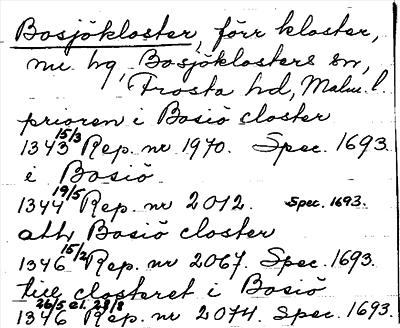 Bosjökloster, förr kloster,
nu hg, Bosjöklosters sn,
Frosta hd, Malm. l.
prioren i Bosiö closter
1343 15/3 Rep. nr 1970. Spec. 1693.
i Bosiö
1344 19/5 Rep. nr 2012. Spec. 1693.
atty Bosiö closter
1346 15/2 Rep. nr 2067. Spec. 1693.
till closteret i Bosiö
1346 26/5 el. 28/8 Rep. nr 2074. Spec. 1693.